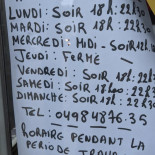 LUNDI: SOIR 18h: 22h30
MARDI: SOIR 18h: 22h30
MERCREDI: MIDI - SOIR 18h
JEUDI: FERMÉ
VENDREDI: SOIR 18h: 22h30
SAMEDI: SOIR 18h 22h30
DIMANCHE: SOIR 18h: 22h30
TEL: 0498487635
HORAIRE PENDANT LA
PERIODE